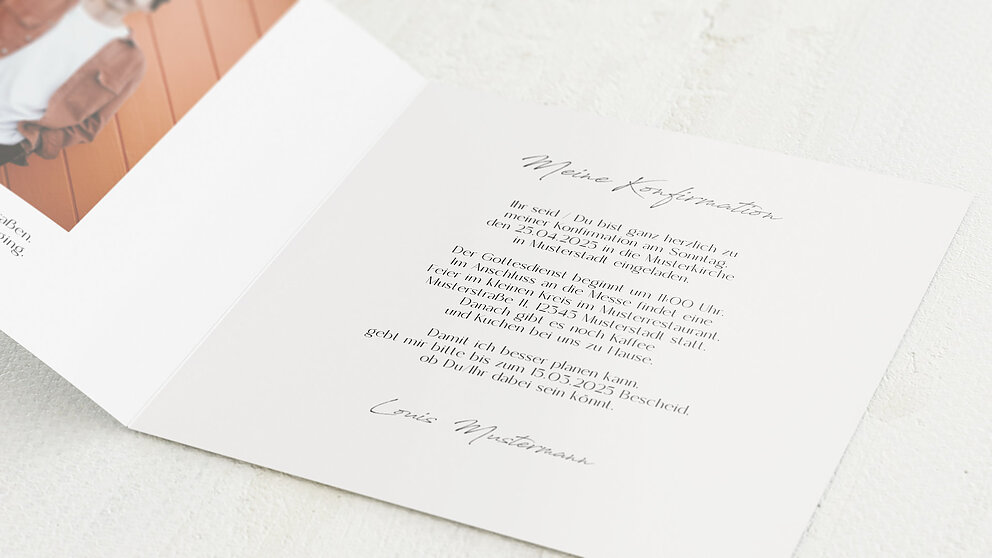 aßen.
ging.
Meine Konfirmation
Ihr seid / Du bist ganz herzlich zu
meiner Konfirmation am Sonntag,
den 25.04.2025 in die Musterkirche
in Musterstadt eingeladen.
Der Gottesdienst beginnt um 11:00 Uhr.
Im Anschluss an die Messe findet eine
Feier im kleinen Kreis im Musterrestaurant,
Musterstraße 11, 12345 Musterstadt statt.
Danach gibt es noch Kaffee
und Kuchen bei uns zu Hause.
Damit ich besser planen kann,
gebt mir bitte bis zum 15.03.2025 Bescheid,
ob Du/Ihr dabei sein könnt.
Louis Mustermann